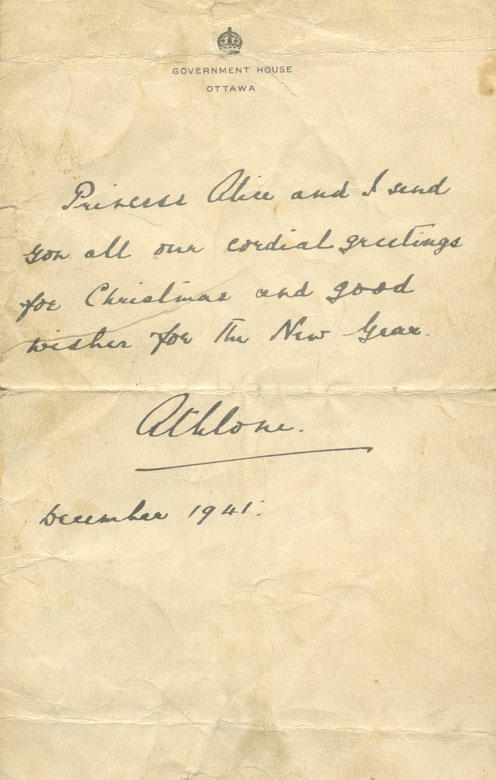 GOVERNMENT HOUSE.
OTTAWA
Princess Alice and I send
you all our cordial greetings
for Christmas and good
wishes for the New Year.
Athlone.
December 1941.